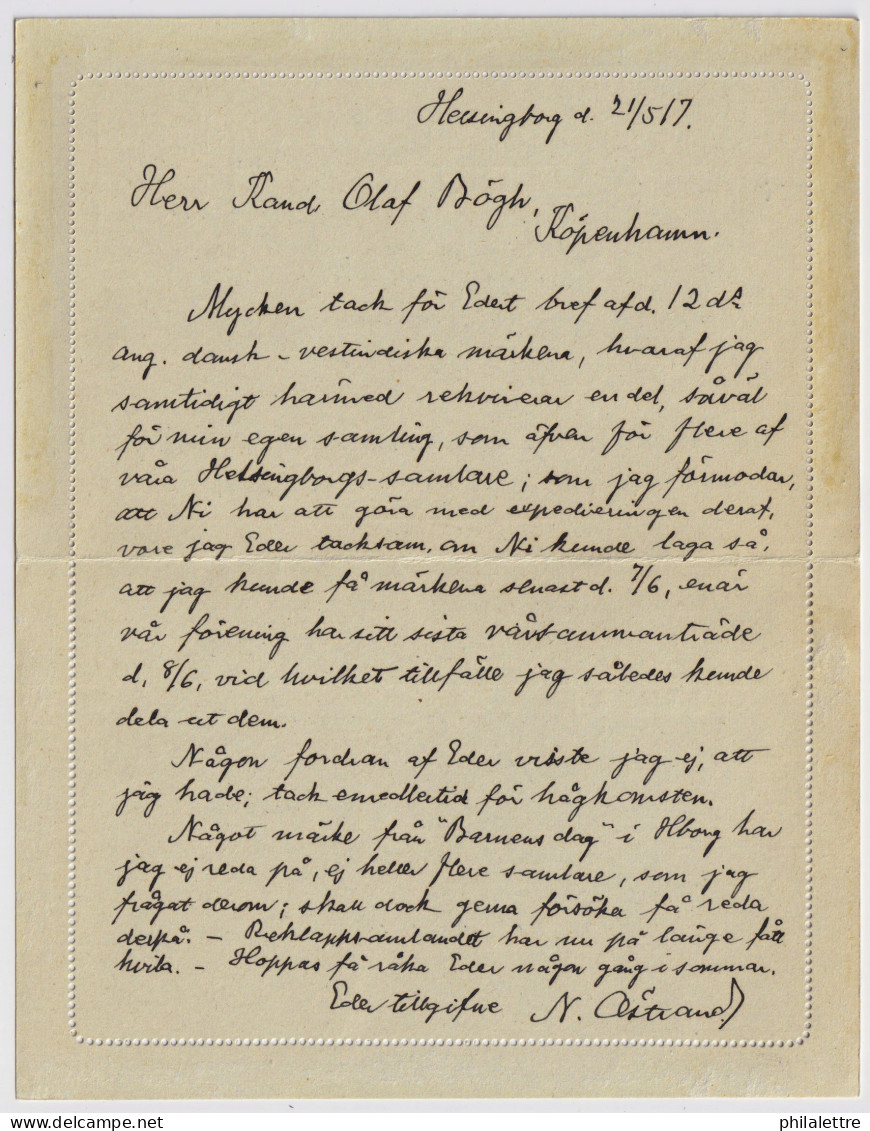 Helsingborg d. 21/5 17.
Herr Kand. Olaf Bögh,
Köpenhamn.
Mycken tack för Edert bref af d. 12 ds
ang. dansk-vestindiska märkena, hvaraf jag
samtidigt härmed rekvirerar en del, såväl
för min egen samling, som äfven för flere af
våra Helsingborgs-samlare; som jag förmodar,
att Ni har att göra med expedieringen deraf,
vore jag Eder tacksam, om Ni kunde laga så,
att jag kunde få märkena senast d. 7/6, enär
vår förening har sitt sista vårsammanträde
d. 8/6, vid hvilket tillfälle jag således kunde
dela ut dem.
Någon fordran af Eder visste jag ej, att
jag hade; tack emellertid för hågkomsten.
Något märke från "Barnens dag" i Hborg har
jag ej reda på, ej heller flere samlare, som jag
frågat derom; skall dock gerna försöka få reda
derpå. - Reklapps-samlandet har nu på länge fått
hvila. - Hoppas få råka Eder någon gång i sommar.
Eder tillgifne N. Östrand
www.delcampe.net
philalettre